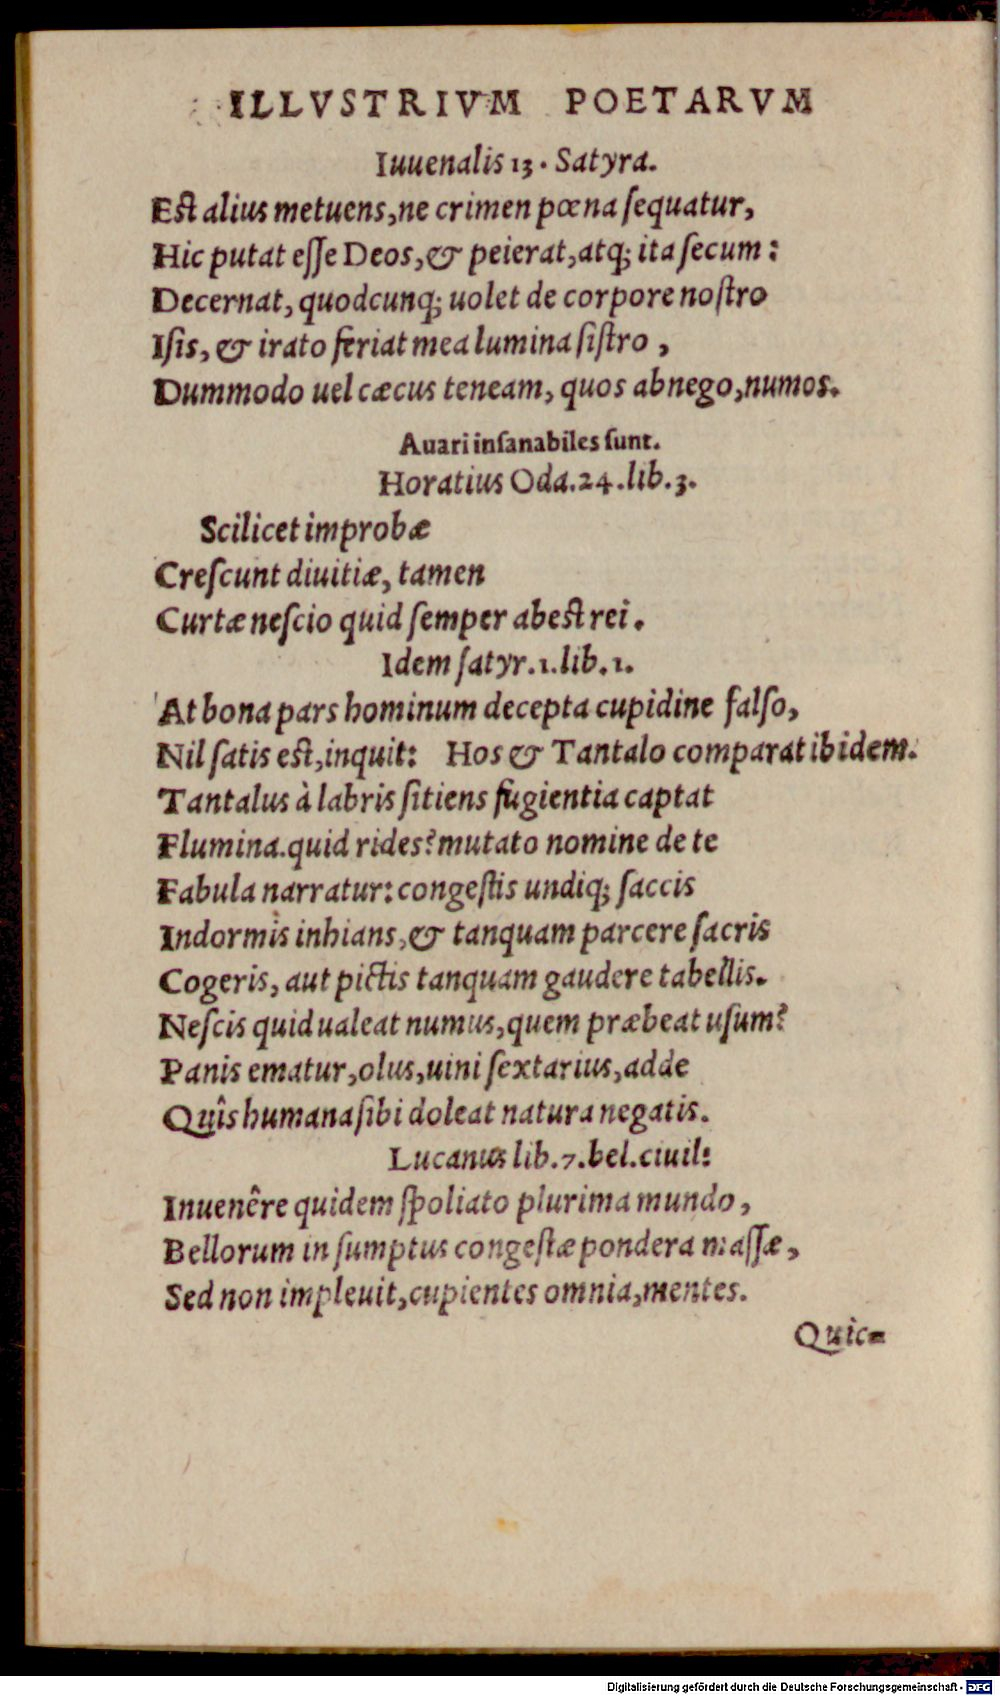 ILLVSTRIVM POETARVM
Iuuenalis 13. Satyra.
Est alius metuens, ne crimen pœna ſequatur,
Hic putat eſſe Deos, & peierat, atq; ita ſecum:
Decernat, quodcunq; uolet de corpore noſtro
Iſis, & irato feriat mea lumina ſiſtro,
Dummodo uel cæcus teneam, quos abnego, numos.
Auari inſanabiles ſunt.
Horatius Oda. 24. lib. 3.
Scilicet improbæ
Creſcunt diuitiæ, tamen
Curtæ neſcio quid ſemper abest rei.
Idem ſatyr. 1. lib. 1.
At bona pars hominum decepta cupidine falſo,
Nil ſatis est, inquit: Hos & Tantalo comparat ibidem.
Tantalus à labris ſitiens fugientia captat
Flumina. quid rides? mutato nomine de te
Fabula narratur: congeſtis undiq; ſaccis
Indormis inhians, & tanquam parcere ſacris
Cogeris, aut pictis tanquam gaudere tabellis.
Neſcis quid ualeat numus, quem præbeat uſum?
Panis ematur, olus, uini ſextarius, adde
Quîs humana ſibi doleat natura negatis.
Lucanus lib. 7. bel. ciuil:
Inuenêre quidem ſpoliato plurima mundo,
Bellorum in ſumptus congeſtæ pondera maſſæ,
Sed non impleuit, cupientes omnia, mentes.
Quic-
Digitalisierung gefördert durch die Deutsche Forschungsgemeinschaft - DFG